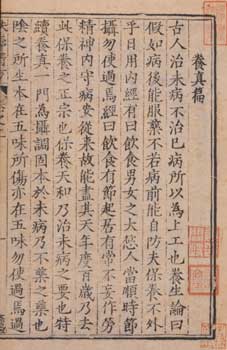 養真篇
古人治未病不治已病所以為上工也養生論曰
假如病後能服藥不若病前能自防夫保養不外
乎日用内經有曰飲食男女之大慾人當順時節
攝勿使過焉經曰飲食有節起居有常不妄作勞
精神内守病安從來故能盡其天年度百歲乃去
此保養之正宗也保養天和乃治未病之要也特
續養真一門為攝調固本於未病乃不藥之藥也
陰之所生本在五味所傷亦在五味勿使過焉過